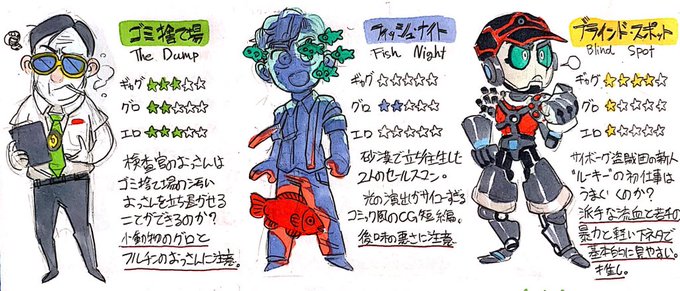 ゴミ捨て場
The Dump
ギャグ ★★★☆☆
グロ ★★★☆☆
エロ ★★★☆☆
検査官のおっさんは
ゴミ捨て場の汚い
おっさんを立ち退かせる
ことができるのか?
小動物のグロと
フルチンのおっさんに注意。
フィッシュナイト
Fish Night
ギャグ ☆☆☆☆☆
グロ ★★☆☆☆
エロ ☆☆☆☆☆
砂漠で立ち往生した
2人のセールスマン。
光の演出がサイコーすぎる
コミック風のCG短編。
後味の悪さに注意
ブラインドスポット
Blind Spot
ギャグ ★★★★☆
グロ ★☆☆☆☆
エロ ★☆☆☆☆
サイボーグ盗賊団の新人
"ルーキー"の初仕事は
うまくいくのか?
派手な流血と若干の
暴力と軽い下ネタで
基本的に見やすい。
推し。